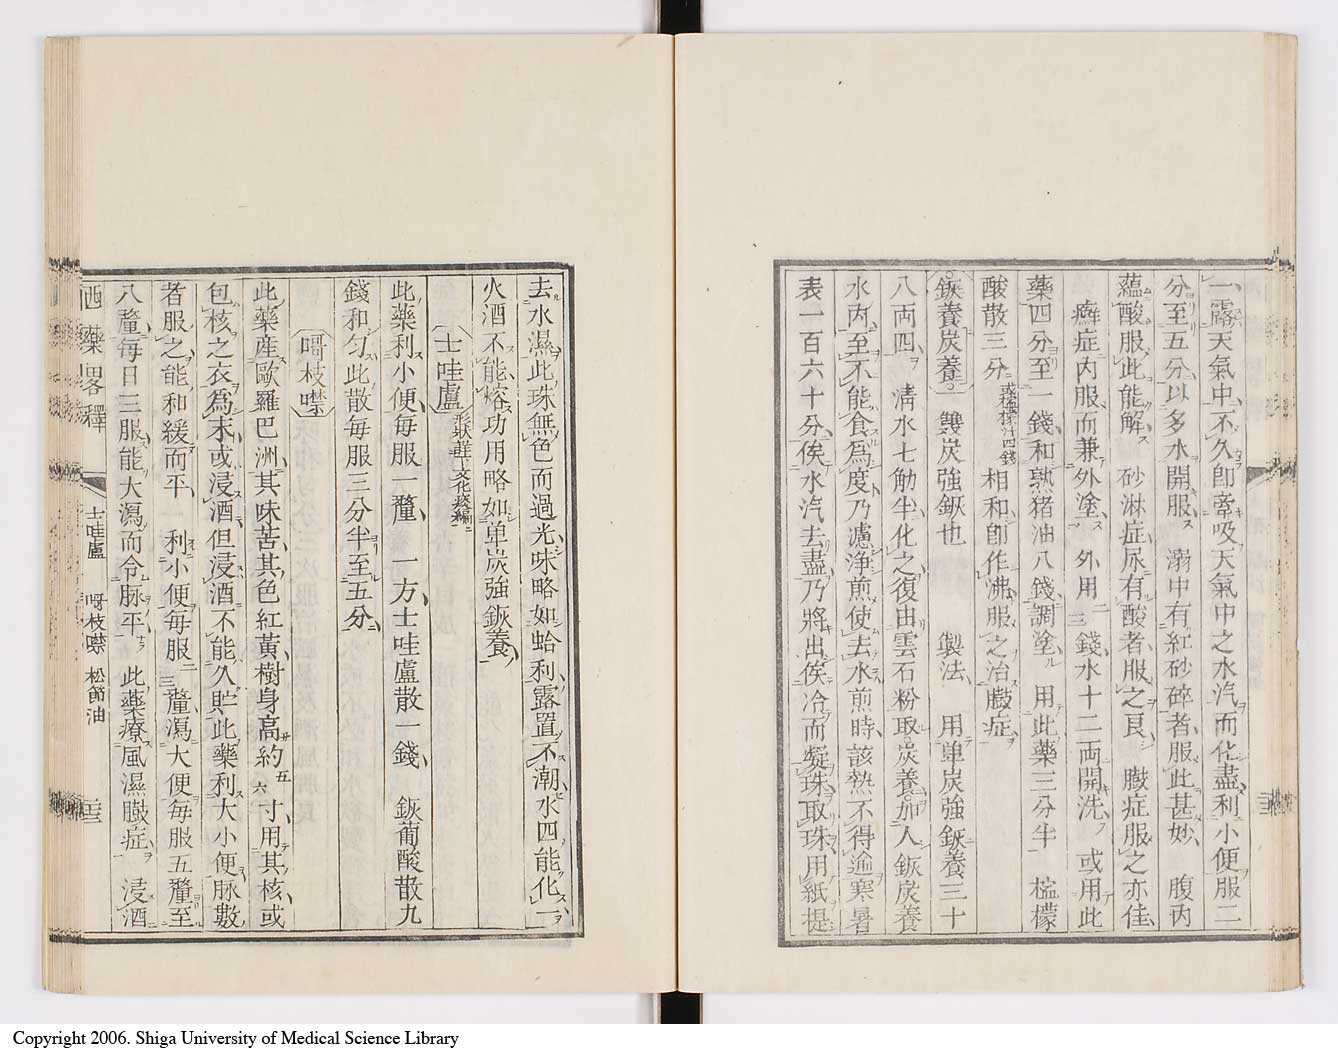 一露天氣中不久即牽吸天氣中之水汽而化盡利小便服二
分至五分以多水開服 溺中有紅砂碎者服此甚妙 腹内
蘊酸服此能解 砂淋症尿有酸者服之良 臌症服之亦佳
癬症内服而兼外塗 外用二三錢水十二両開洗 或用此
藥四分至一錢和熟猪油八錢調塗 用此藥三分半 檸檬
酸散三分 或檸檬汁四錢 相和即作沸服之治臌症
鋉養炭養 雙炭強鋉也 製法 用単炭強鋉養三十
八両四 清水七觔半化之復由雲石粉取炭養加入鋉炭養
水内至不能食為度乃濾浄煎使去水煎時該熱不得逾寒暑
表一百六十分俟水汽去盡乃將出俟冷而凝珠取珠用紙提
去水濕此珠無色而過光味略如蛤利露置不潮水四能化一
火酒不能熔功用略如单炭強鋉養
士哇盧 形状註上文化痰編
此藥利小便毎服一釐 一方士哇盧散一錢 鋉葡酸散九
錢和匀此散毎服三分半至五分
哷枝噤
此藥產歐羅巴洲其味苦其色紅黃樹身高約五六寸用其核或
包核之衣爲末或浸酒但浸酒不能久貯此藥利大小便脉數
者服之能和緩而平 利小便毎服二三釐瀉大便毎服五釐至
八釐每日三服能大瀉而令脉平 此藥療風濕臌症 浸酒
西藥畧釋 士哇盧 哷枝噤 松節油 二十三
Copyright 2006. Shiga University of Medical Science Library